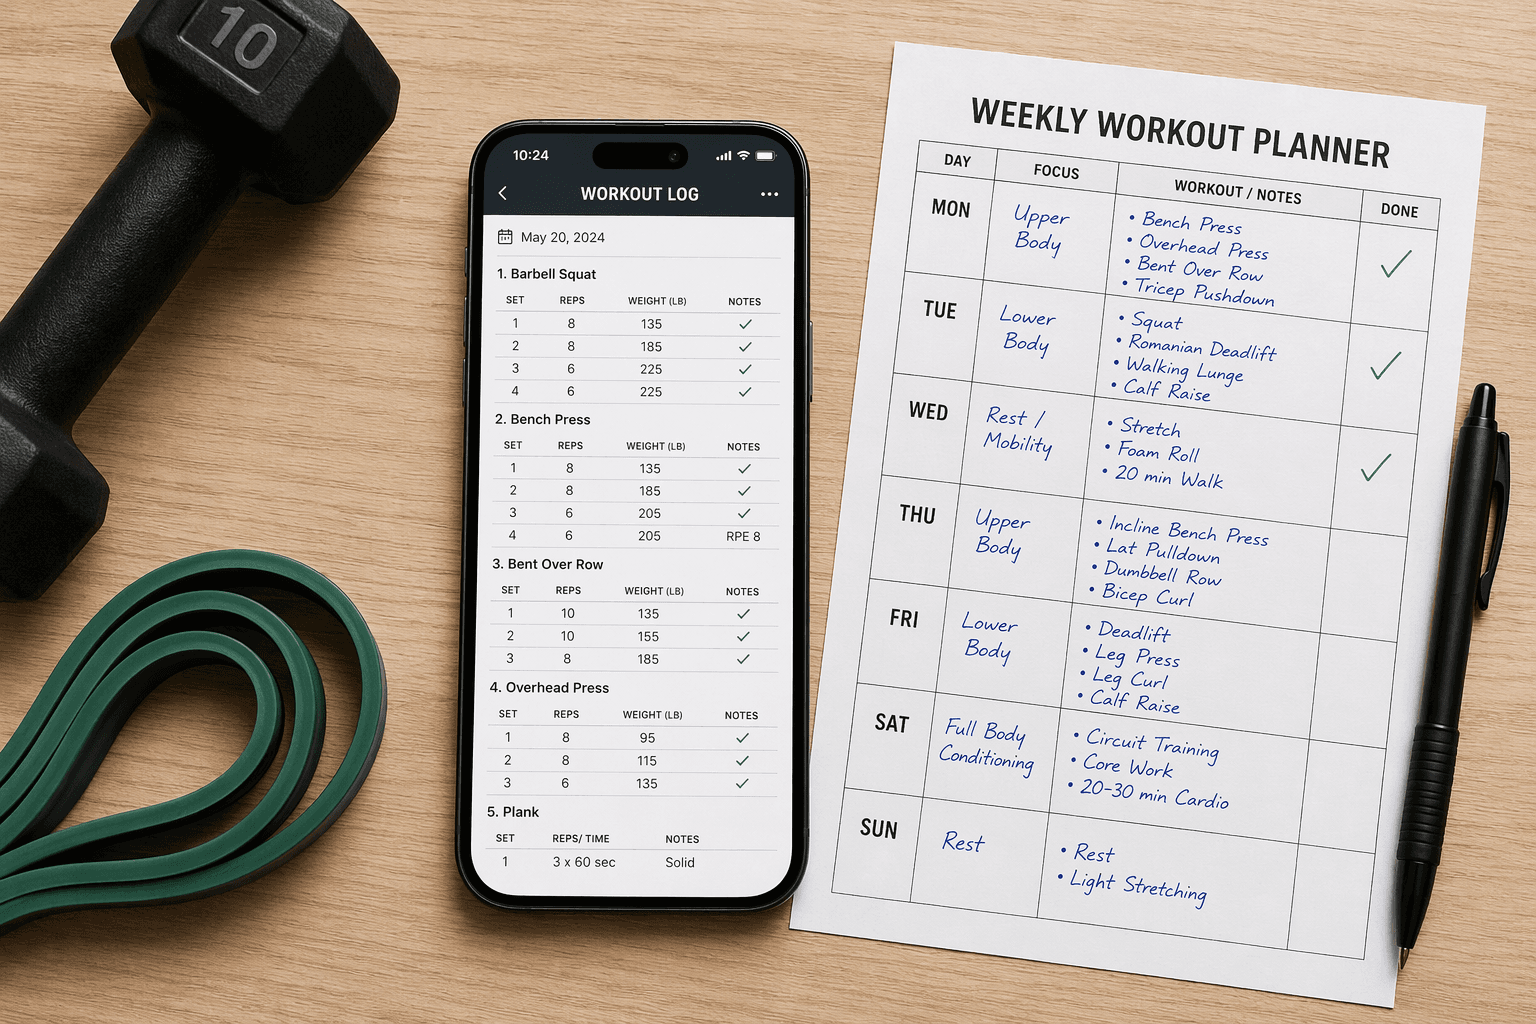 10
10:24
WORKOUT LOG
May 20, 2024
1. Barbell Squat
SET REPS WEIGHT (LB) NOTES
1 8 135 ✓
2 8 185 ✓
3 6 225 ✓
4 6 225 ✓
2. Bench Press
SET REPS WEIGHT (LB) NOTES
1 8 135 ✓
2 8 185 ✓
3 6 205 ✓
4 6 205 RPE 8
3. Bent Over Row
SET REPS WEIGHT (LB) NOTES
1 10 135 ✓
2 10 155 ✓
3 8 185 ✓
4. Overhead Press
SET REPS WEIGHT (LB) NOTES
1 8 95 ✓
2 8 115 ✓
3 6 135 ✓
5. Plank
SET REPS/ TIME NOTES
1 3 x 60 sec Solid
WEEKLY WORKOUT PLANNER
DAY FOCUS WORKOUT / NOTES DONE
MON
Upper
Body
• Bench Press
• Overhead Press
• Bent Over Row
• Tricep Pushdown
✓
TUE
Lower
Body
• Squat
• Romanian Deadlift
• Walking Lunge
• Calf Raise
✓
WED
Rest /
Mobility
• Stretch
• Foam Roll
• 20 min Walk
✓
THU
Upper
Body
• Incline Bench Press
• Lat Pulldown
• Dumbbell Row
• Bicep Curl
FRI
Lower
Body
• Deadlift
• Leg Press
• Leg Curl
• Calf Raise
SAT
Full Body
Conditioning
• Circuit Training
• Core Work
• 20-30 min Cardio
SUN
Rest
• Rest
• Light Stretching